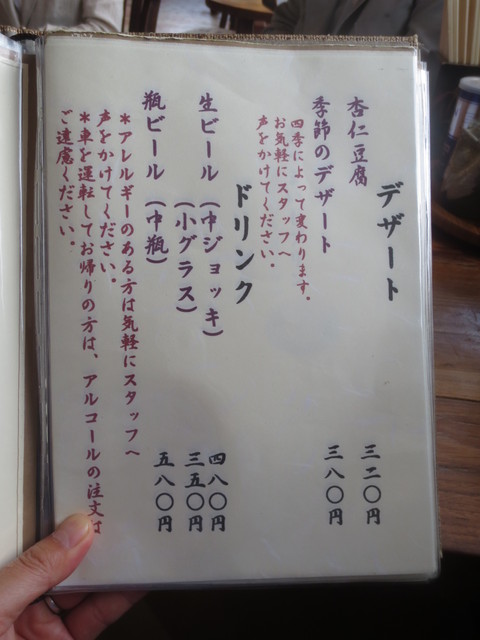 デザート
杏仁豆腐 三二〇円
季節のデザート 三八〇円
四季によって変わります。
お気軽にスタッフへ
声をかけてください。
ドリンク
生ビール (中ジョッキ) 四八〇円
(小グラス) 三五〇円
瓶ビール (中瓶) 五八〇円
*アレルギーのある方は気軽にスタッフへ
声をかけてください。
*車を運転してお帰りの方は、アルコールの注文は
ご遠慮ください。